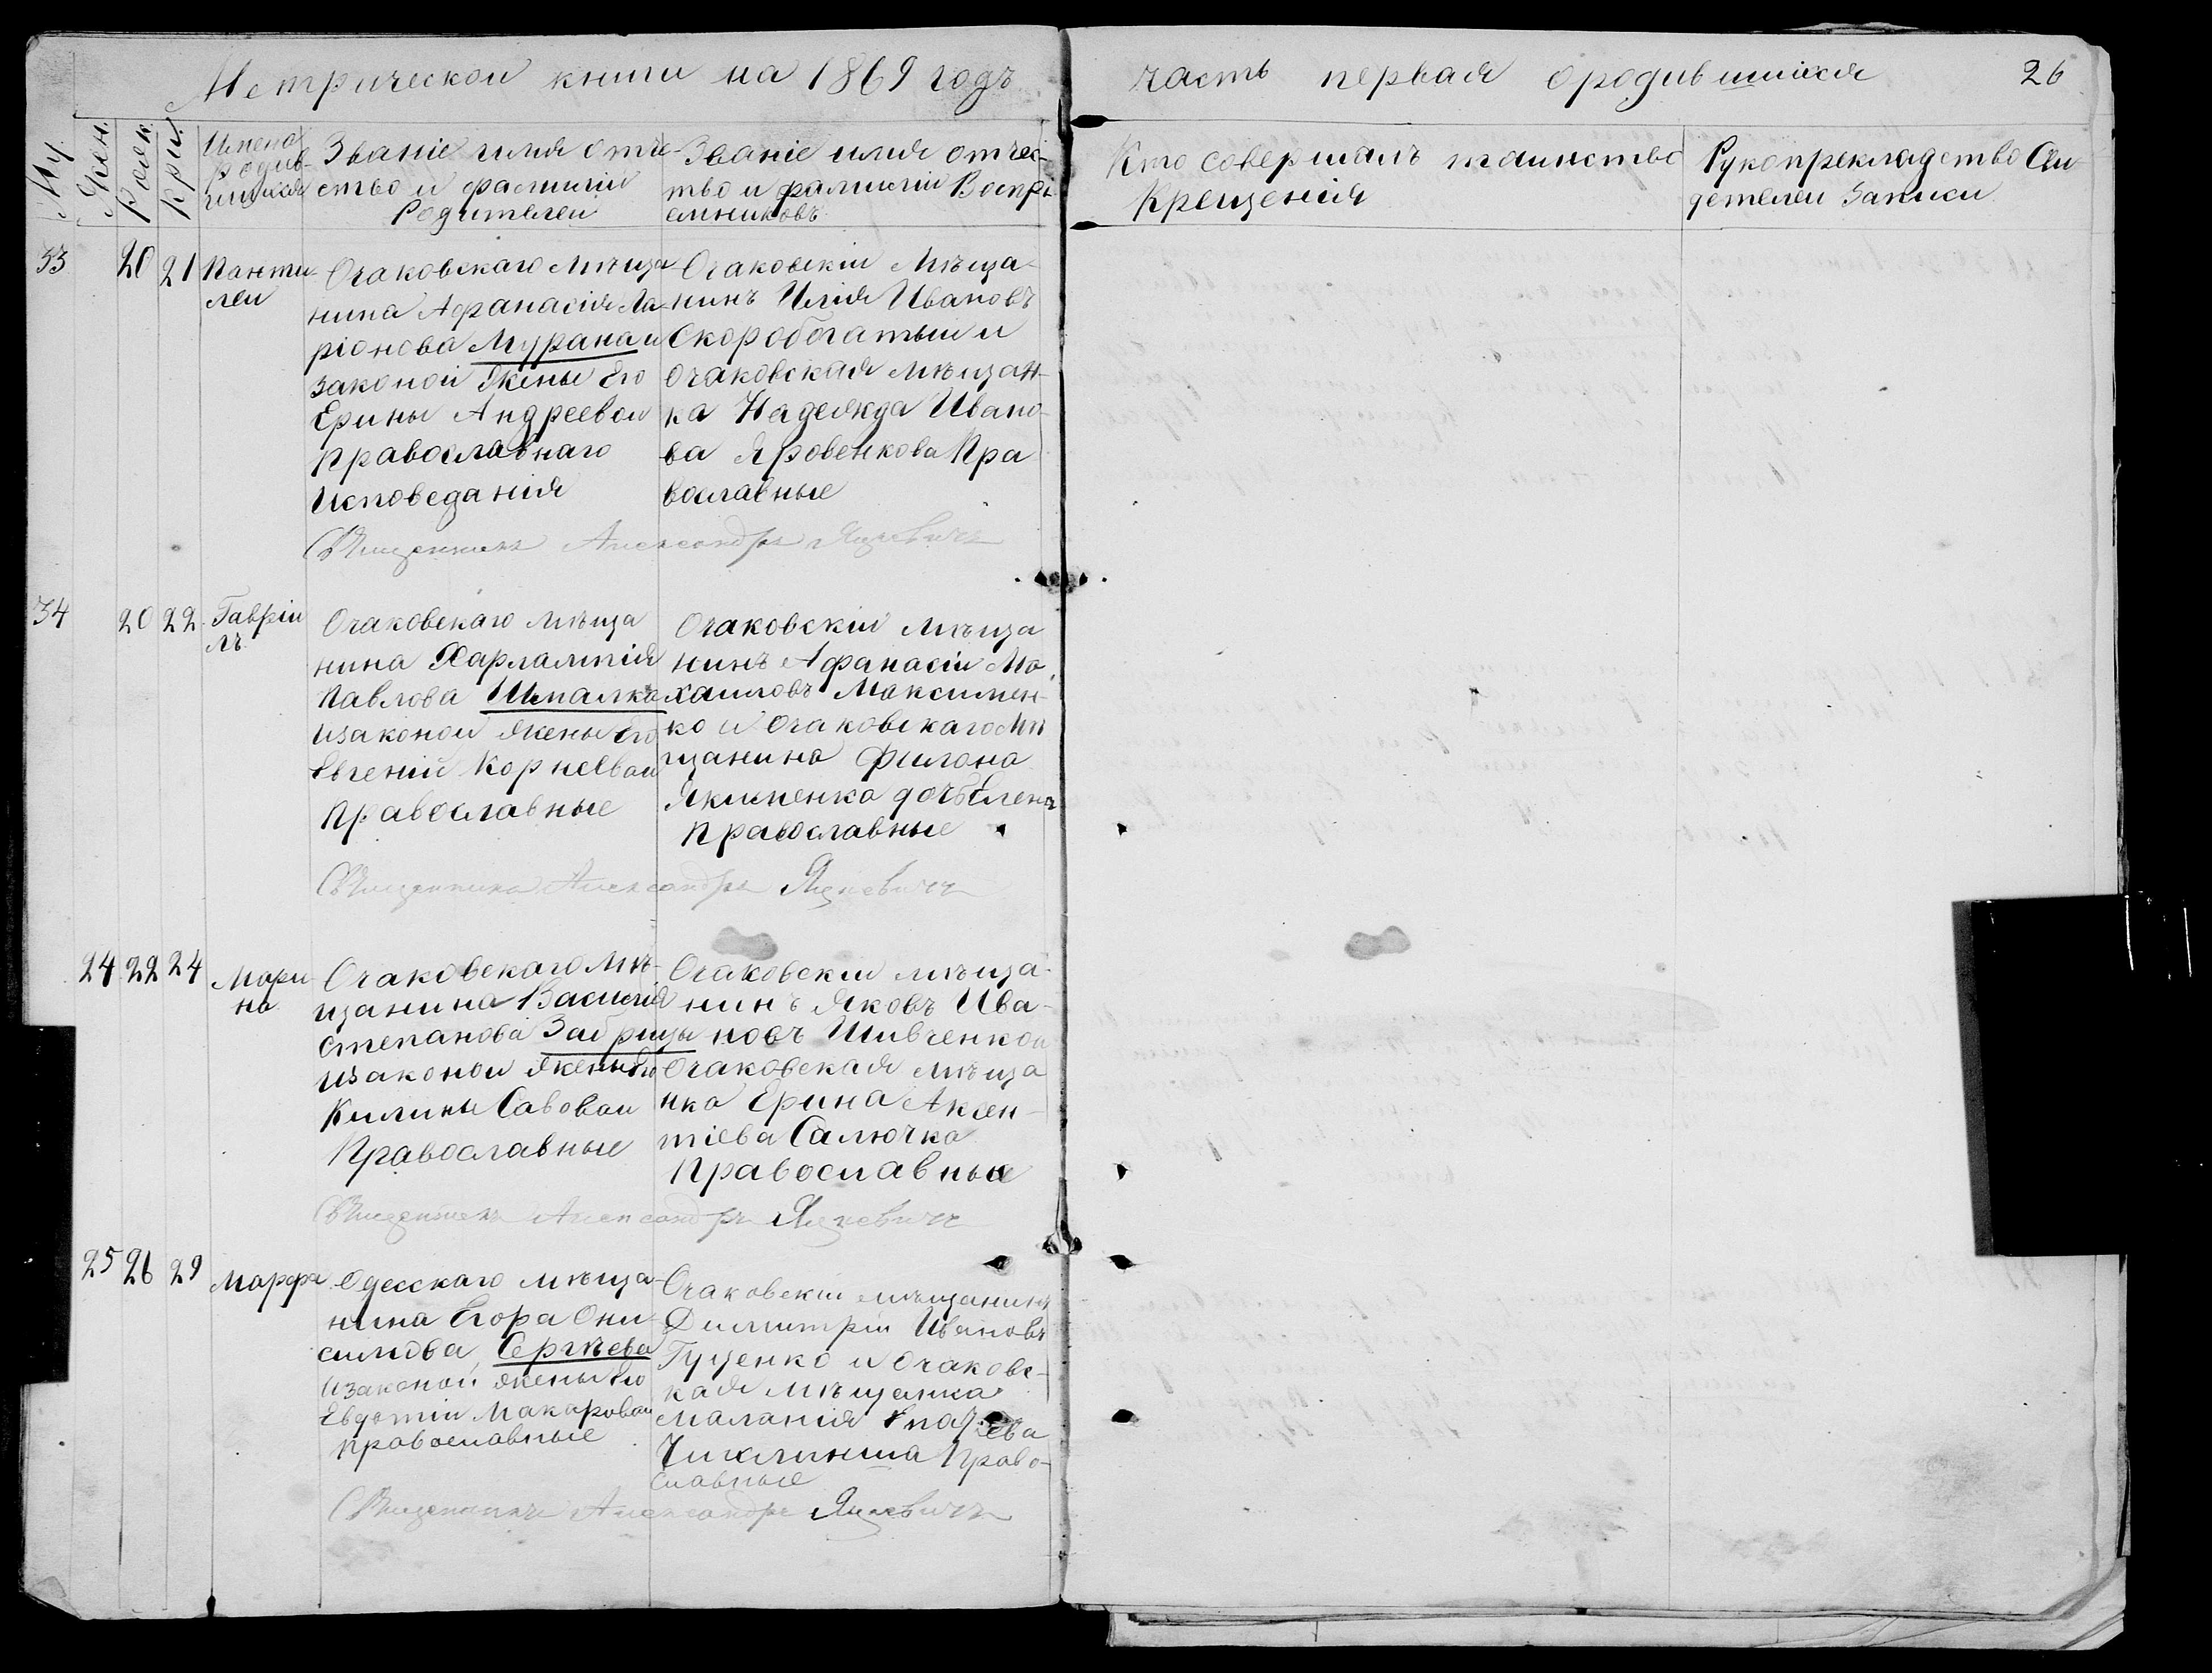 Метрической книги на 1869 годъ
часть первая о родившихся
26
Му.
Жен.
Рожд.
Кри.
Имена
родив-
шихся
Званіе имя отче-
ство и фамиліи
Родителей
Званіе имя отчес-
тво и фамиліи Воспрі-
емниковъ
Кто совершалъ таинство
Крещенія
Рукоприкладство Сви-
детелей записи
33
20
21
Панти-
леи
Очаковскаго мѣща
нина Афанасія Ла-
ріонова Мурана и
законой жены Его
Ерины Андреевой
православнаго
Исповеданія
Очаковскій Мѣща-
нинъ Илія Ивановъ
Скоробогатый и
Очаковская мѣщан-
ка Надежда Ивано-
ва Яровенкова Пра
вославные
Священникъ Александръ Яцкевичъ
34
20
22
Гавріи
лъ
Очаковскаго мѣща
нина Харлампія
Павлова Шпалка
изаконой жены Его
Евгеній Корневой
Православные
Очаковскій мѣща
нинъ Афанасій Ма
хаиловъ Максимен-
ко и Очаковскаго Мѣ
щанина Филона
Якименка дочь Елена
Православные
Священникъ Александръ Яцкевичъ
24
22
24
Мари-
на
Очаковскаго мѣ-
щанина Василія
Степанова Забрицы
изаконой жены Его
Килины Савовой
Православные
Очаковскій мѣща-
нинъ Яковъ Ива-
новъ Шивченко и
Очаковская мѣща
нка Ерина Аксен-
тіева Салючка
Православные
Священникъ Александръ Яцкевичъ
25
26
29
Марфа
Одесскаго мѣща-
нина Егора Они-
симова Сергѣева
изаконой жены Его
Евдотіи Макаровой
православные
Очаковскій мѣщанинъ
Димитрій Ивановъ
Гуценко и Очаковс-
кая мѣщанка
Маланія
Чиклинша Право-
славные
Священникъ Александръ Яцкевичъ